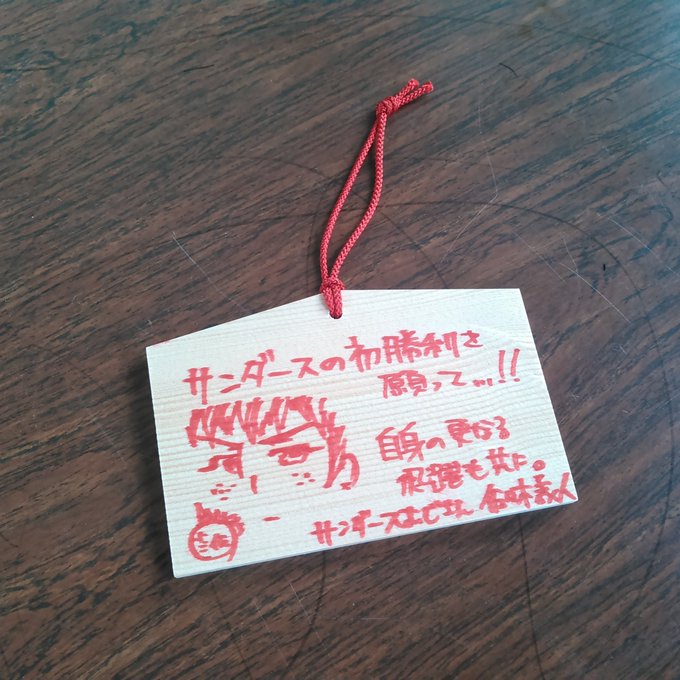 サンダースの初勝利を
願って…!!
自身の更なる
飛躍も共に。
サンダースよしさん